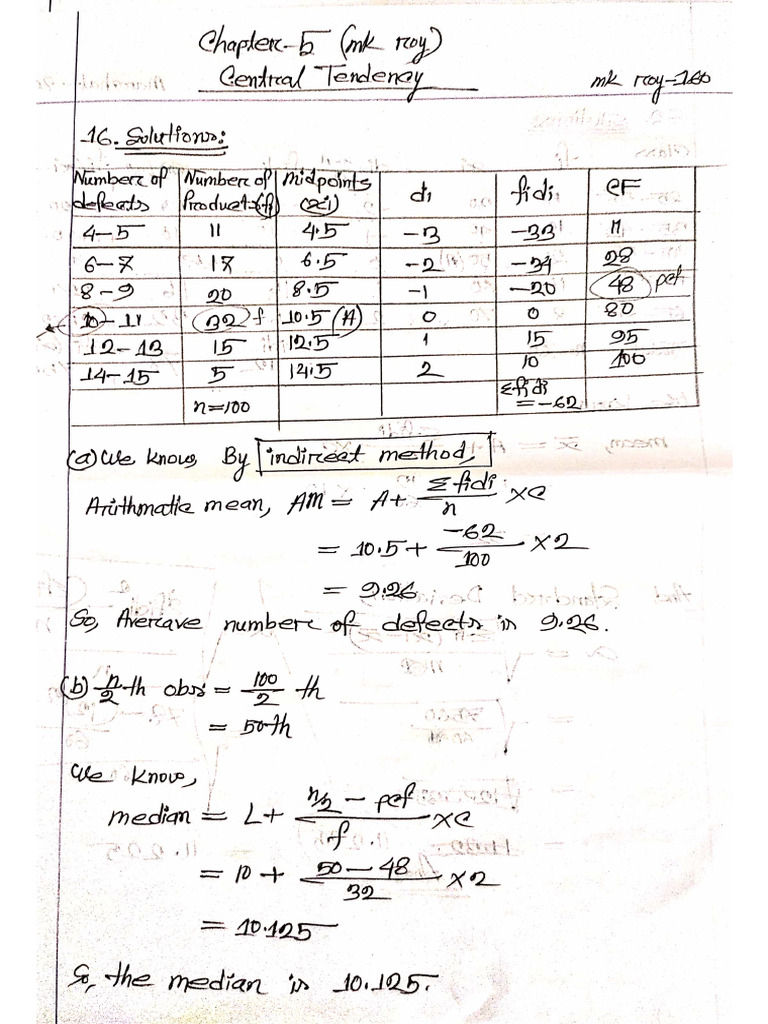 Chapter-5 (mk roy)
Central Tendency
mk roy-160
16. Solutions:
Number of defects | Number of Products (f) | midpoints (xi) | di | fidi | CF
4-5 | 11 | 4.5 | -3 | -33 | 11
6-7 | 17 | 6.5 | -2 | -34 | 28
8-9 | 20 | 8.5 | -1 | -20 | 48 pcf
10-11 | 32 f | 10.5 (A) | 0 | 0 | 80
12-13 | 15 | 12.5 | 1 | 15 | 95
14-15 | 5 | 14.5 | 2 | 10 | 100
n=100 | Σfidi = -62
(a) We know, By indirect method,
Arithmatic mean, AM = A + Σfidi/n × C
= 10.5 + -62/100 × 2
= 9.26
So, Avercave number of defects is 9.26.
(b) n/2-th obs = 100/2 th
= 50th
We know,
median = L + n/2 - pcf/f × C
= 10 + 50-48/32 × 2
= 10.125
So, the median is 10.125.